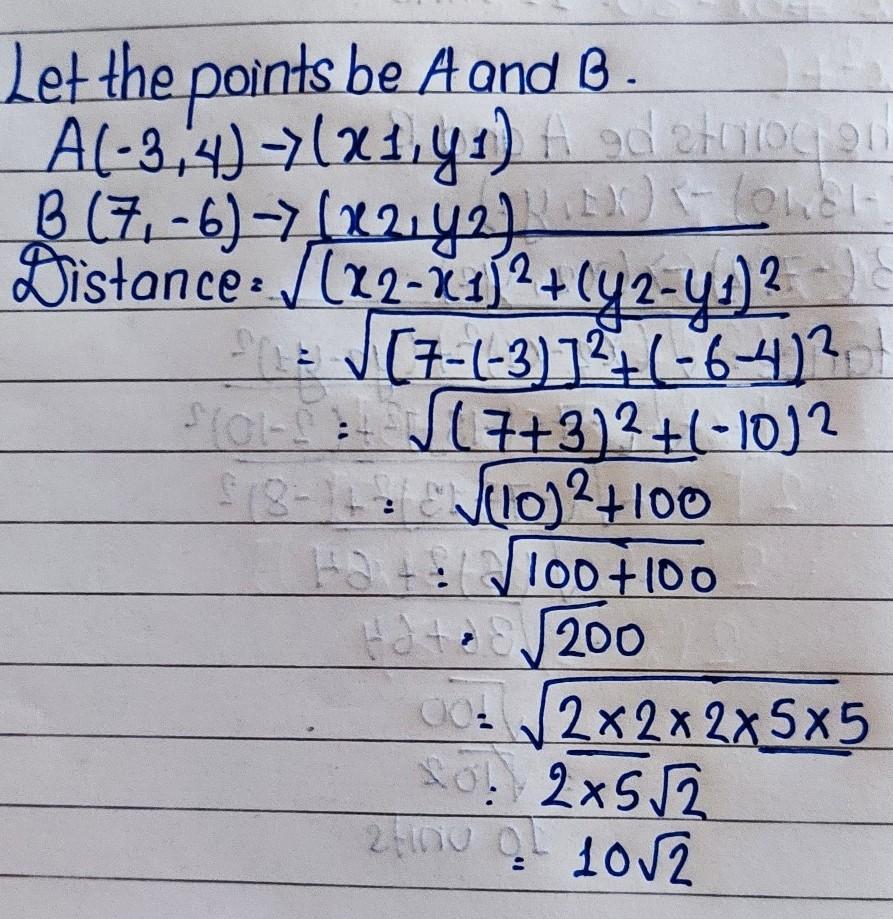 Let the points be A and B.
A(-3,4)→(x1,y1)
B(7,-6)→(x2,y2)
Distance=√(x2-x1)2+(y2-y1)2
=√[7-(-3)]2+(-6-4)2
=√(7+3)2+(-10)2
=√(10)2+100
=√100+100
=√200
=√2×2×2×5×5
=2×5√2
=10√2